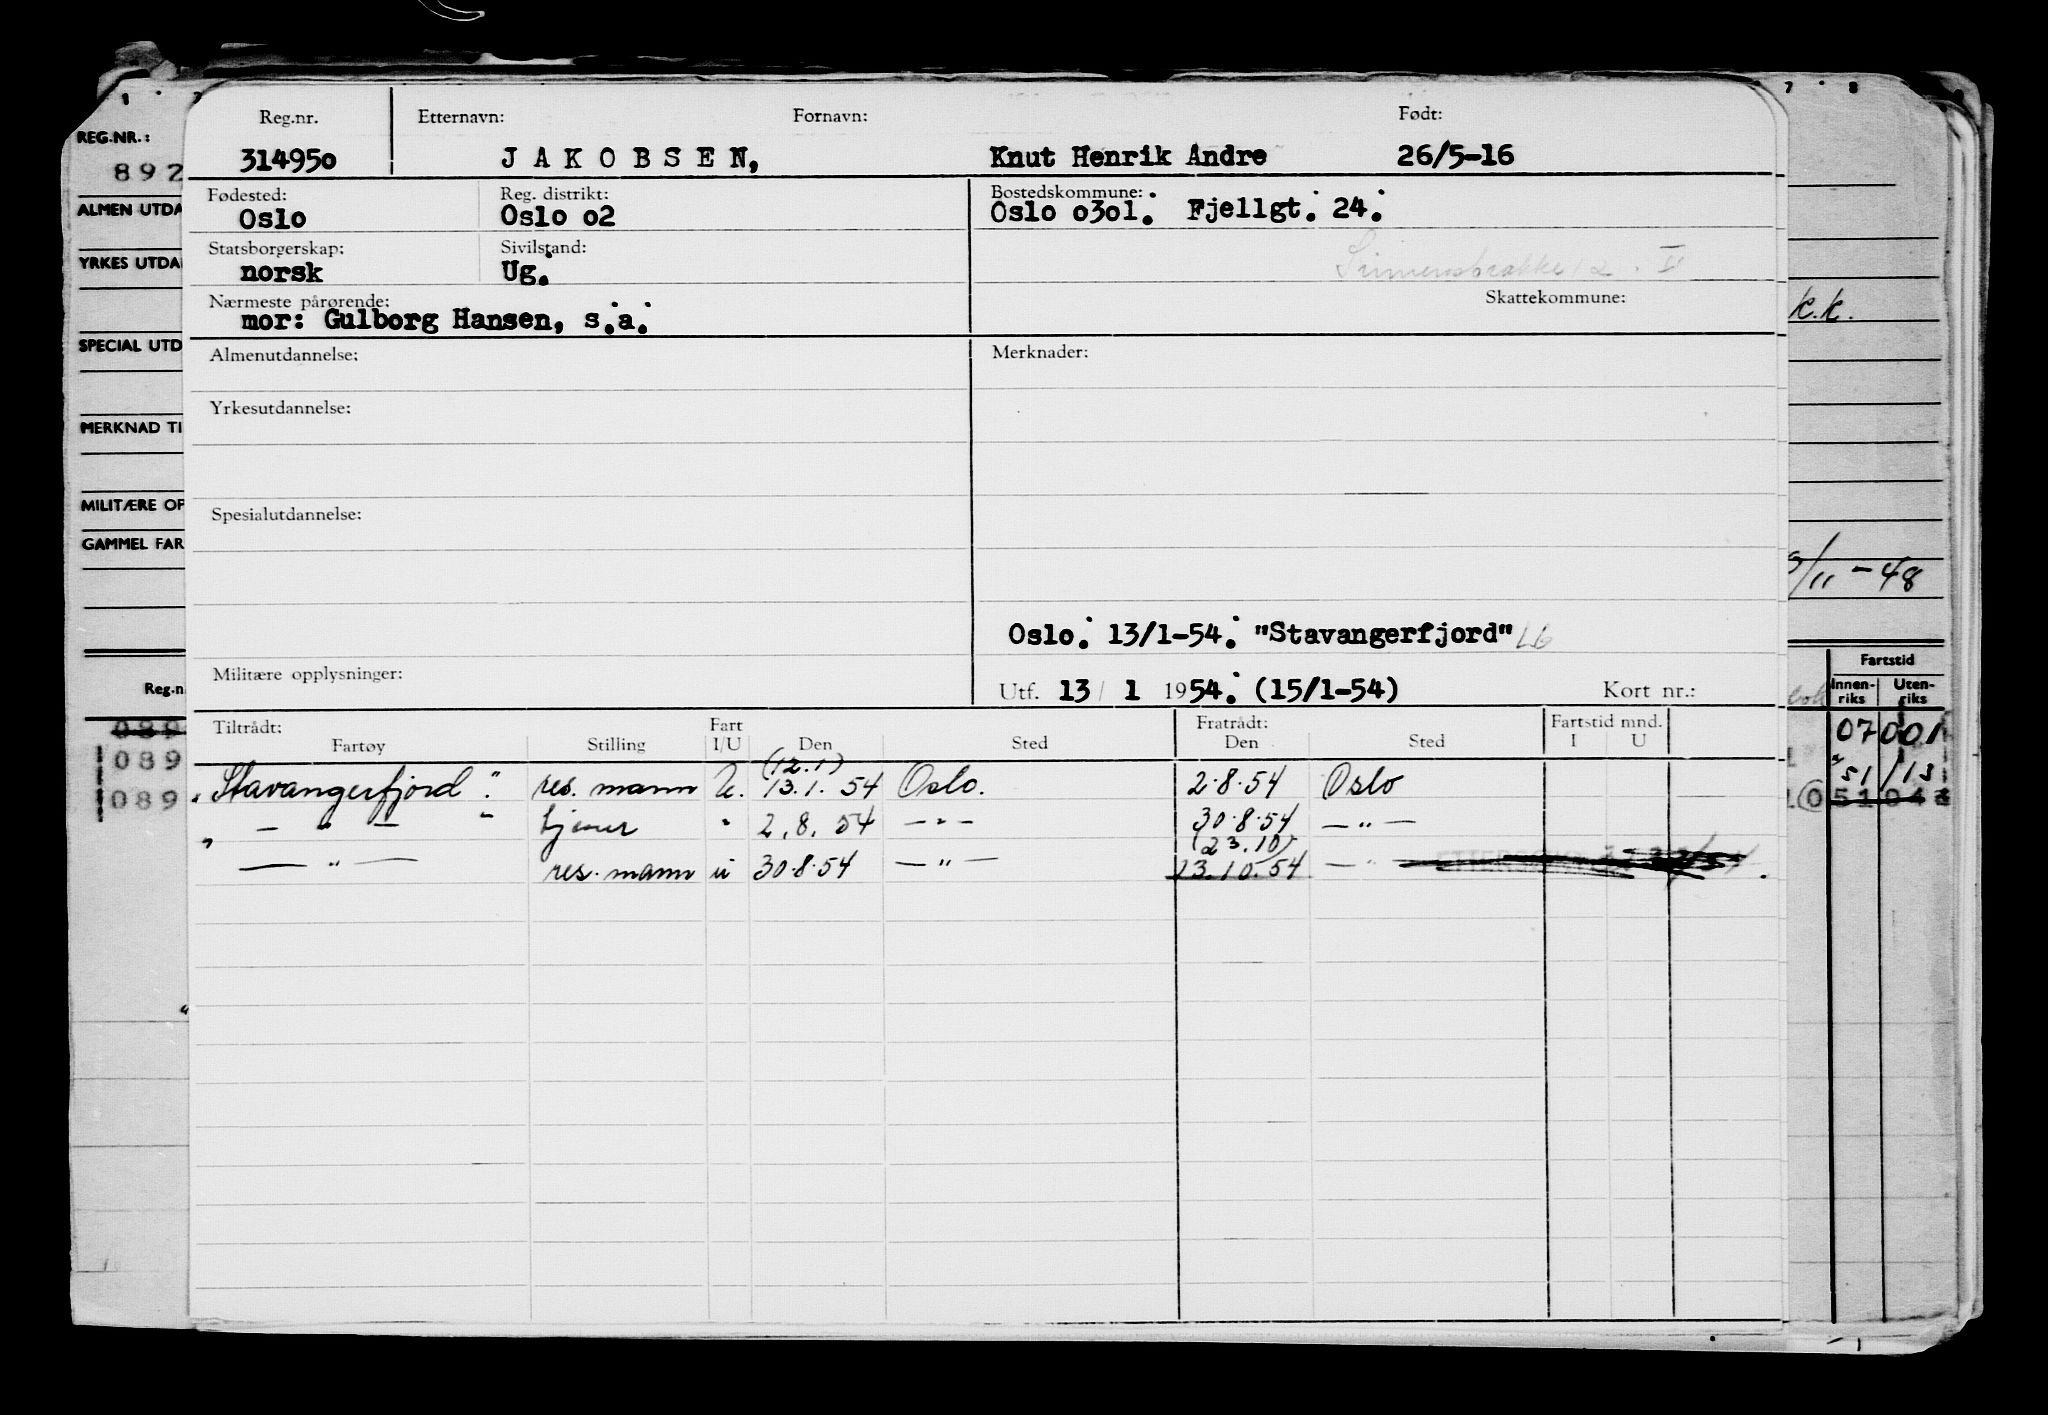 Reg.nr. Etternavn: Fornavn: Født:
314950 JAKOBSEN, Knut Henrik Andre 26/5-16
Fødested: Reg. distrikt: Bostedskommune:
Oslo Oslo o2 Oslo o3o1. Fjellgt. 24.
Statsborgerskap: Sivilstand:
norsk Ug.
Nærmeste pårørende: Skattekommune:
mor: Gulborg Hansen, s.a.
Almenutdannelse: Merknader:
Yrkesutdannelse:
Spesialutdannelse:
Oslo. 13/1-54. "Stavangerfjord"
Militære opplysninger:
Utf. 13/ 1 1954. (15/1-54) Kort nr.:
Tiltrådt: Fart Fratrådt: Fartstid mnd.
Fartøy Stilling I/U Den Sted Den Sted I U
(12.1)
"Stavangerfjord". res. mann U. 13.1. 54 Oslo. 2.8.54 Oslo
" — " — " tjener " 2.8. 54 — " — 30.8.54 — " —
(23.10)
— " — res. mann u 30.8.54 — " — 23.10.54 — "
REG.NR.:
892
ALMEN UTDA
YRKES UTDA
SPECIAL UTD
MERKNAD TI
MILITÆRE OP
GAMMEL FAR
Reg.n
089
089
089
7 8
K.K.
/11-48
Fartstid
Innen- Uten-
riks riks
07 001
51 / 13
51 04